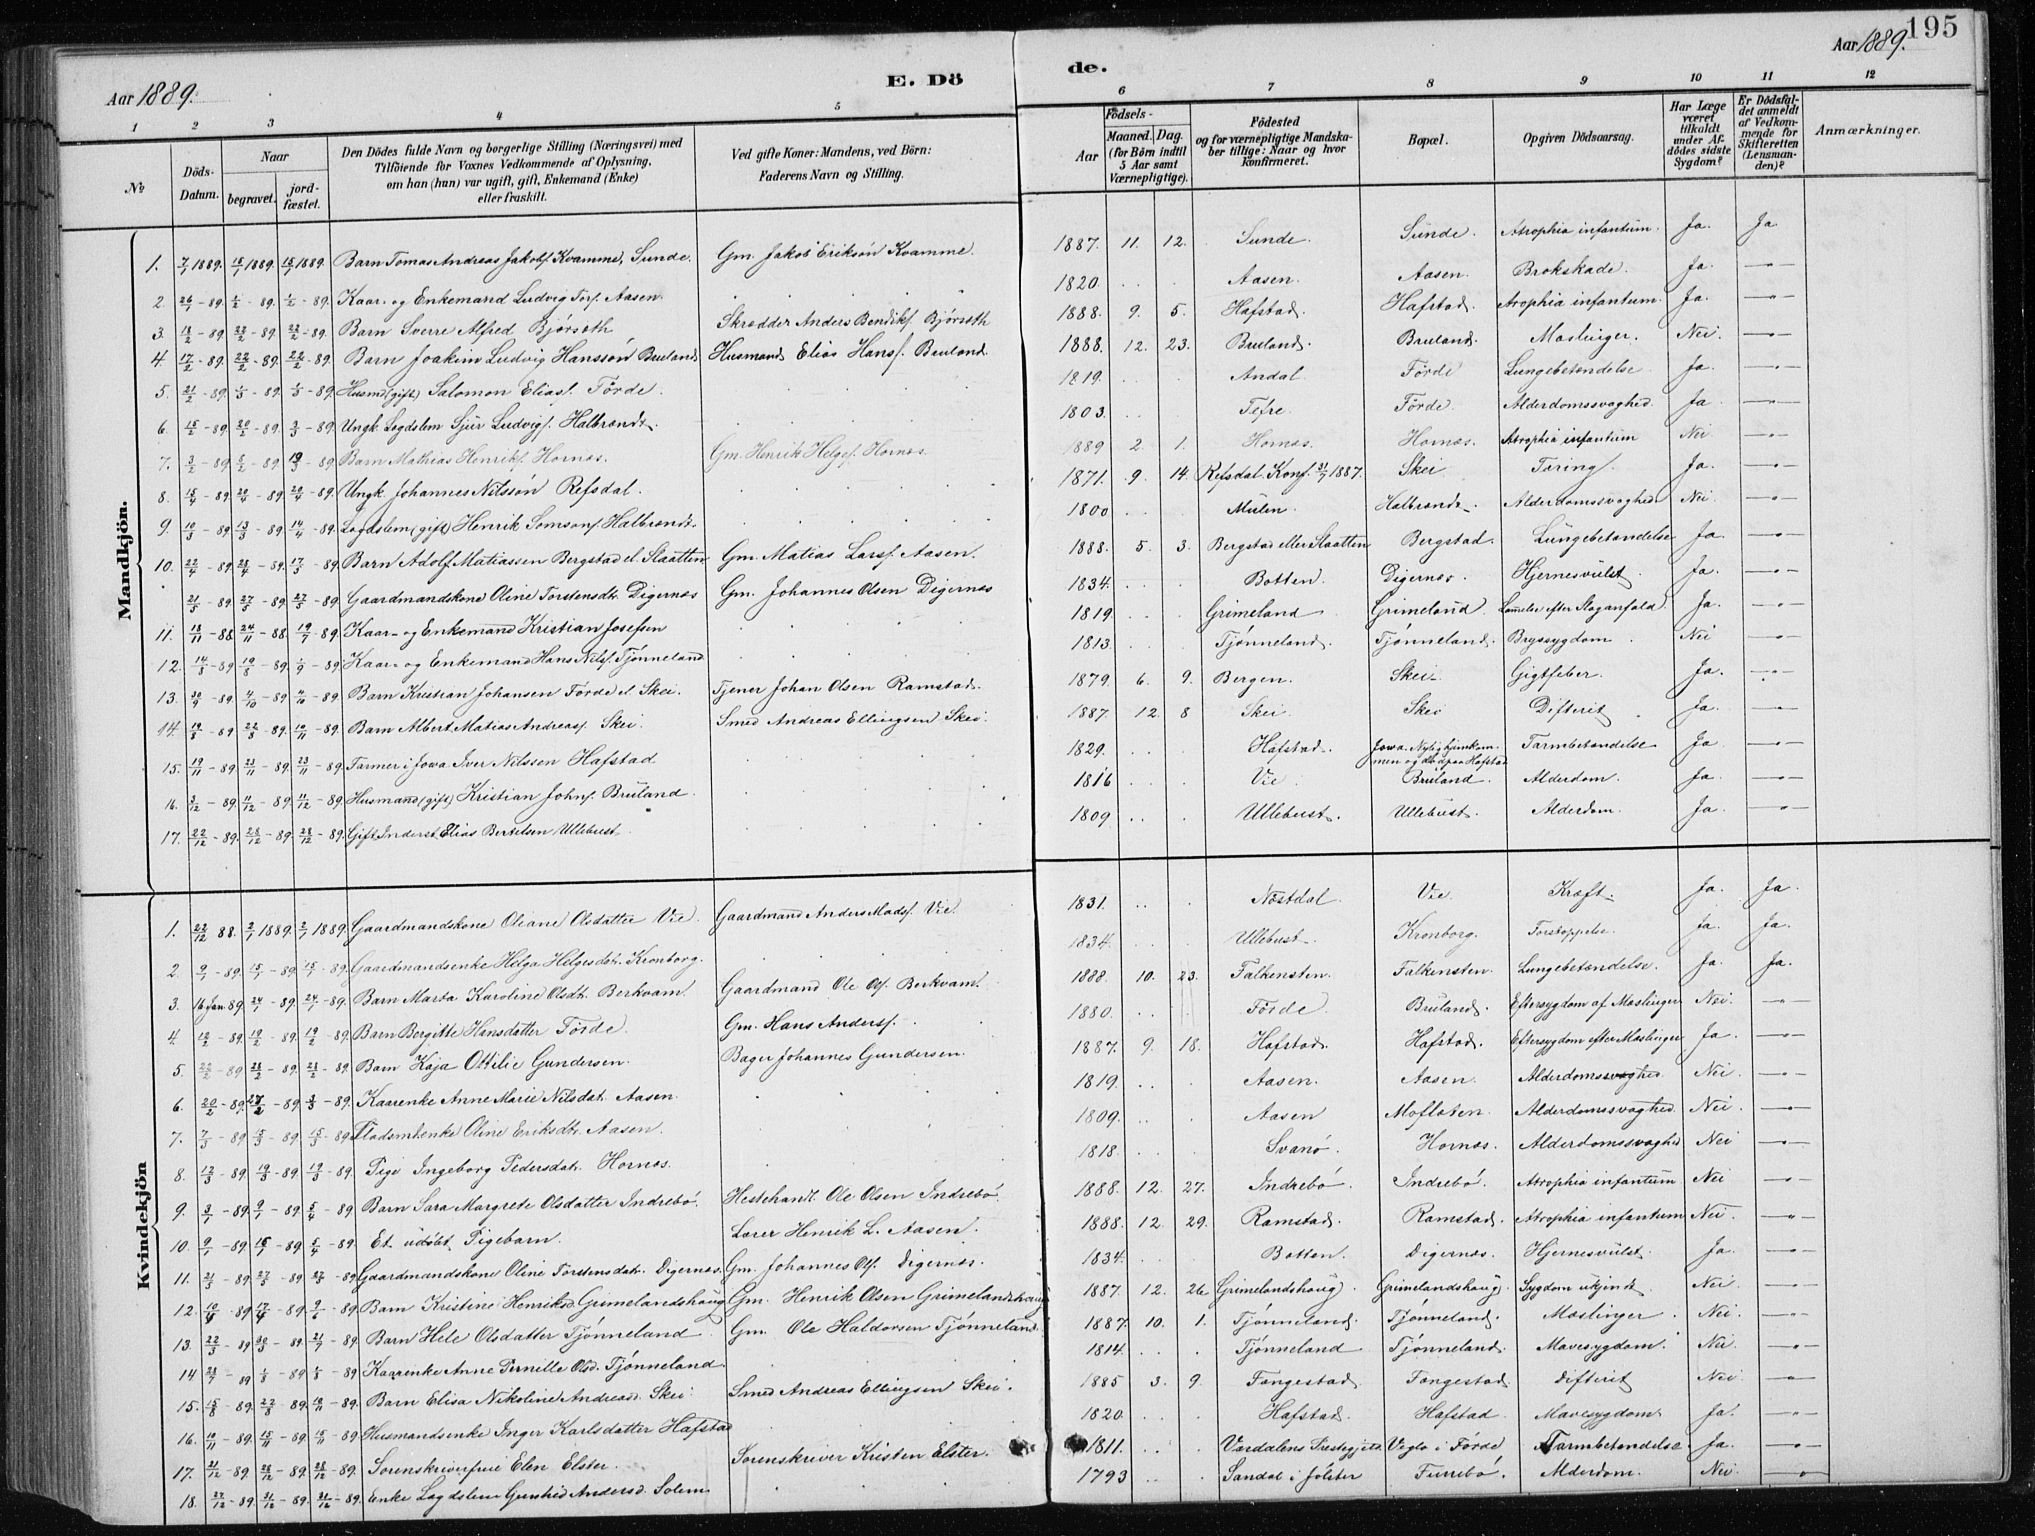 195
Aar 1889.
E. Dö
de.
Aar 1889.
1 2 3 4 5 6 7 8 9 10 11 12
№ Döds-Datum. Naar begravet. jordfæstet. Den Dödes fulde Navn og borgerlige Stilling (Næringsvei) med Tilföiende for Voxnes Vedkommende af Oplysning, om han (hun) var ugift, gift, Enkemand (Enke) eller fraskilt. Ved gifte Koner: Mandens, ved Börn: Faderens Navn og Stilling. Födsels- Aar Maaned. Dag. (for Börn indtil 5 Aar samt Værnepligtige). Födested og for værnepligtige Mandskaber tillige: Naar og hvor Konfirmeret. Bopæl. Opgiven Dödsaarsag. Har Læge været tilkaldt under Afdödes sidste Sygdom? Er Dödsfaldet anmeldt af Vedkommende for Skifteretten (Lensmanden)? Anmærkninger.
Mandkjön.
1. 7/1 1889. 15/1 1889. 15/1 1889. Barn Tomas Andreas Jakobs. Kvamme, Sunde. Gm. Jakob Erikson Kvamme. 1887. 11. 12. Sunde. Sunde. Atrophia infantum. Ja. Ja
2. 26/1 - 89. 1/2 - 89. 1/2 - 89. Kaar- og Enkemand Ludvig Torf. Aasen. 1820. Aasen. Aasen. Brokskade. Ja. -"-
3. 18/2 - 89. 22/2 - 89. 22/2 - 89. Barn Sverre Alfred Bjørseth Skrædder Anders Bendiks. Bjørseth 1888. 9. 5. Hafstad. Hafstad. Atrophia infantum. Ja. -"-
4. 17/2 - 89. 22/2 - 89. 22/2 - 89. Barn Joakim Ludvig Hansson Bruland Husmand Elias Hans. Bruland. 1888. 12. 23. Bruland. Bruland. Maslinger. Nei. -"-
5. 21/2 - 89. 1/3 - 89. 1/3 - 89. Husmd (gift) Salomon Elias. Förde. 1819. Andal Förde. Lungebetændelse Ja. -"-
6. 15/2 - 89. 20/2 - 89. 3/3 - 89. Ungk. Logdslem Sjur Ludvigs. Halbrendt. 1803. Tefre Förde. Alderdomssvaghed. Ja -"-
7. 3/2 - 89. 8/2 - 89. 19/3 - 89. Barn Mathias Henriks. Hornes. Gm. Henrik Helges. Hornes. 1889 2. 1. Hornes. Hornes. Atrophia infantum Nei -"-
8. 15/4 - 89. 20/4 - 89 20/4 - 89. Ungk. Johannes Nilsson Refsdal. 1871. 9. 14. Refsdal. Konf. 31/7 1887. Skei Tæring. Ja. -"-
9. 10/3 - 89 13/3 - 89 14/4 - 89. Logdslem (gift) Henrik Samsons. Halbrendt. 1800 Mulen Halbrendt. Alderdomssvaghed Nei -"-
10. 22/4 - 89. 28/4 - 89. 17/5 - 89. Barn Adolf Matiassen Bergstad el. Slaatten Gm. Matias Lars. Aasen. 1888. 5. 3. Bergstad eller Slaatten Bergstad. Lungebetændelse Ja. -"-
21/5 - 89. 27/5 - 89. 27/5 - 89. Gaardmandskone Oline Torstensdt. Digernæs Gm. Johannes Olsen Digernæs 1834. Botten. Digernæs. Hjernesvülst. Ja. -"-
11. 18/11 - 88. 24/11 - 88. 19/7 - 89. Kaar- og Enkemand Kristian Josefsen 1819. Grimeland Grimeland. Lamelse efter Slaganfald. Ja. -"-
12. 14/8 - 89 19/8 - 89. 1/9 - 89. Kaar- og Enkemand Hans Nils. Tjønneland 1813. Tjønneland. Tjønneland. Brystsygdom Nei -"-
13. 30/9 - 89. 4/10 - 89. 4/10 - 89. Barn Kristian Johansen Förde el. Skei. Tjener Johan Olsen Ramstad. 1879 6. 9. Bergen. Skei. Gigtfeber. Ja. -"-
14. 19/8 - 89 22/8 - 89. 10/11 - 89. Barn Albert Matias Andreas. Skei. Smed Andreas Ellingsen Skei. 1887. 12. 8 Skei. Skei Difterit Ja. -"-
15. 19/11 - 89 23/11 - 89. 23/11 - 89. Farmer i Jowa Iver Nilssen Hafstad 1829. Hafstad. Jowa. Nylig hjemkommen og død paa Hafstad Tarmbetændelse Ja -"-
16. 3/12 - 89. 11/12 - 89. 11/12 - 89. Husmand (gift) Kristian Johns. Bruland. 1816 Vie Bruland. Alderdom. Ja -"-
17. 22/12 - 89. 28/12 - 89 28/12 - 89. Gift Inderst Elias Bertelsen Ullebust. 1809 Ullebust. Ullebust. Alderdom. Ja -"-
Kvindekjön
1. 22/12 88. 2/1 1889. 2/1 1889. Gaardmandskone Oliane Olsdatter Vie. Gaardmand Anders Mads. Vie. 1831. Næstdal. Vie. Kræft. Ja. Ja.
2. 9/1 - 89. 15/1 - 89 15/1 - 89. Gaardmandsenke Helga Helgesdat. Kronborg. 1834. Ullebust. Kronborg. Forstoppelse. Ja. Ja.
3. 16 Jan 89. 24/1 - 89. 24/1 - 89. Barn Marta Karoline Olsdt. Berkvam. Gaardmand Ole Ols. Berkvam. 1888. 10. 23. Falkensten. Falkensten. Lungebetændelse. Ja. Ja.
4. 12/2 - 89. 19/2 - 89. 19/2 - 89. Barn Bergitte Hansdatter Förde. Gm. Hans Anders. 1880. Förde. Bruland. Eftersygdom af Maslinger Nei. -"-
5. 22/2 - 89 28/2 - 89. 28/2 - 89. Barn Kaja Ottilie Gundersen. Bager Johannes Gundersen. 1887. 9. 18. Hafstad. Hafstad. Eftersygdom efter Maslinger Ja. -"-
6. 20/2 - 89. 27/2 - 89. 3/3 - 89. Kaarenke Anne Marie Nilsdat. Aasen. 1819. Aasen. Aasen. Alderdomssvaghed. Nei. -"-
7. 7/3 - 89. 15/3 - 89. 15/3 - 89. Oline Eriksdt. Aasen. 1809. Aasen Moflaten. Alderdomssvaghed. Nei. -"-
8. 12/3 - 89. 19/3 - 89 19/3 - 89. Pige Ingeborg Pedersdat. Hornes. 1818. Svanø Hornes. Alderdomssvaghed Nei -"-
9. 3/1 - 89. 9/1 - 89. 5/4 - 89 Barn Sara Margrete Olsdatter Indrebø. Hestehandl. Ole Olsen Indrebø. 1888. 12. 27. Indrebø. Indrebø. Atrophia infantum Nei -"-
10. 9/1 - 89. 15/1 - 89. 5/4 - 89. Et udøbt Pigebarn. Lærer Henrik L. Aasen. 1888. 12. 29. Ramstad. Ramstad. Atrophia infantum Nei. -"-
11. 21/5 - 89. 27/5 - 89 27/5 - 89 Gaardmandskone Oline Torstensdat. Digernæs. Gm. Johannes Ols. Digernæs. 1834. Botten. Digernæs. Hjernesvulst. Ja. -"-
12. 10/4 - 89 17/4 - 89 9/6 - 89. Barn Kristine Henriksd. Grimelandshaug Gm. Henrik Olsen Grimelandshaug 1887. 12. 26 Grimelandshaug. Grimelandshaug. Sygdom ukjendt Nei -"-
13. 22/3 - 89 30/3 - 89. 21/7 - 89. Barn Hele Olsdatter Tjønneland Gm. Ole Haldorsen Tjønneland 1887. 10. 1. Tjønneland. Tjønneland. Maslinger Nei. -"-
14 28/7 - 89 1/8 - 89 - 89 Kaarenke Anne Pernille Olsd. Tjønneland. 1814. Tjønneland Tjønneland. Mavesygdom. Nei. -"-
15. 15/8 - 89. 22/8 - 89. 10/11 - 89. Barn Elisa Nikoline Andreasd. Skei. Smed Andreas Ellingsen Skei. 1885 3. 9. Fangestad Fangestad. difterit Nei -"-
16. 10/11 - 89. 15/11 - 89. 15/11 - 89. Husmandsenke Inger Karlsdatter Hafstad 1820. Hafstad. Hafstad Mavesygdom Ja. -"-
17. 21/12 - 89. 28/12 - 89. 28/12 - 89. Sorenskriverfrue Elen Elster. Sorenskriver Kristen Elster. 1811. Vardalens Prestegjeld Vegla i Förde Tarmbetændelse Ja. -"-
18. 27/12 - 89. 31/12 - 89. 31/12 - 89. Enke Logdslem Gunhild Andersd. Solem 1793 Sandal i Jølster Furrebø. Alderdom. Nei. -"-